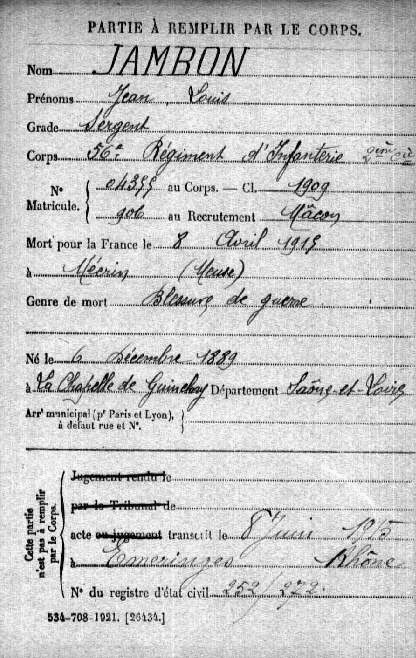 PARTIE À REMPLIR PAR LE CORPS.
Nom JAMBON
Prénoms Jean Louis
Grade Sergent
Corps 56e Régiment d'Infanterie
N° Matricule. { 04355 au Corps. — Cl. 1909
906 au Recrutement Mâcon
Mort pour la France le 8 Avril 1915
à Mécrin (Meuse)
Genre de mort Blessure de guerre
Né le 6 Décembre 1889
à La Chapelle de Guinchay Département Saône-et-Loire
Arr¹ municipal (p¹ Paris et Lyon),
à défaut rue et N°.
Cette partie n'est pas à remplir par le Corps.
Jugement rendu le
par le Tribunal de
acte ou jugement transcrit le 8 Juin 1915
à Emeringes Rhône
N° du registre d'état civil 252/272
534-708-1921. [26434.]